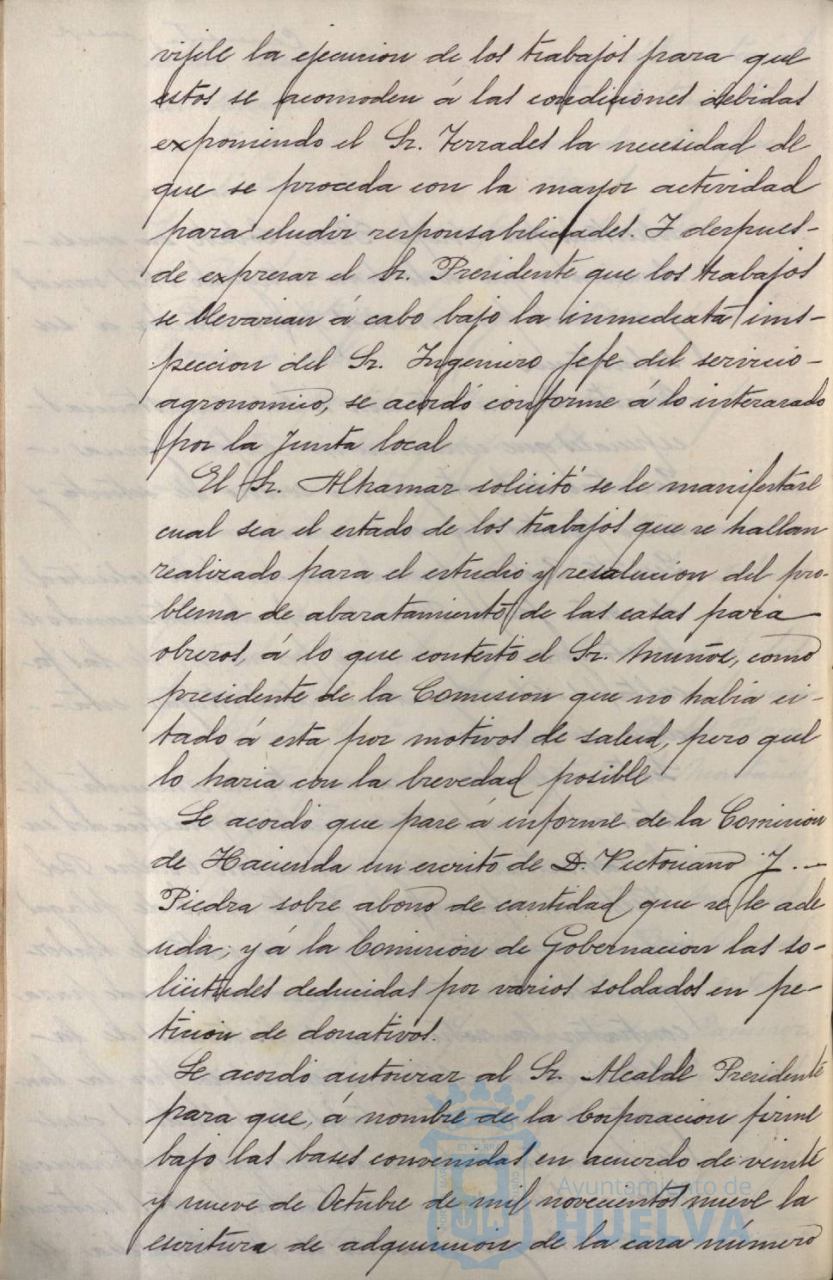 vijile la ejecucion de los trabajos para que
estos se acomoden á las condiciones debidas
exponiendo el Sr. Terrades la necesidad de
que se proceda con la mayor actividad
para eludir responsabilidades. Y despues-
de expresar el Sr. Presidente que los trabajos
se llevarian á cabo bajo la inmediata ins-
peccion del Sr. Ingeniero Jefe del servicio-
agronomico, se acordó conforme á lo interesado
por la Junta local
El Sr. Alkamar solicitó se le manifestase
cual sea el estado de los trabajos que se hallan
realizado para el estudio y resolucion del pro-
blema de abaratamiento de las casas para
obreros, á lo que contestó el Sr. Muñoz, como
presidente de la Comision que no habia ci-
tado á esta por motivos de salud, pero que
lo haria con la brevedad posible
Se acordó que pase á informe de la Comision
de Hacienda un escrito de D. Victoriano J. -
Piedra sobre abono de cantidad que se le ade
uda; y á la Comision de Gobernacion las so-
licitudes deducidas por varios soldados en pe-
ticion de donativos.
Se acordó autorizar al Sr. Alcalde Presidente
para que, á nombre de la Corporacion firme
bajo las bases convenidas en acuerdo de veinte
y nueve de Octubre de mil novecientos nueve la
escritura de adquisicion de la casa número
Ayuntamiento de
HUELVA